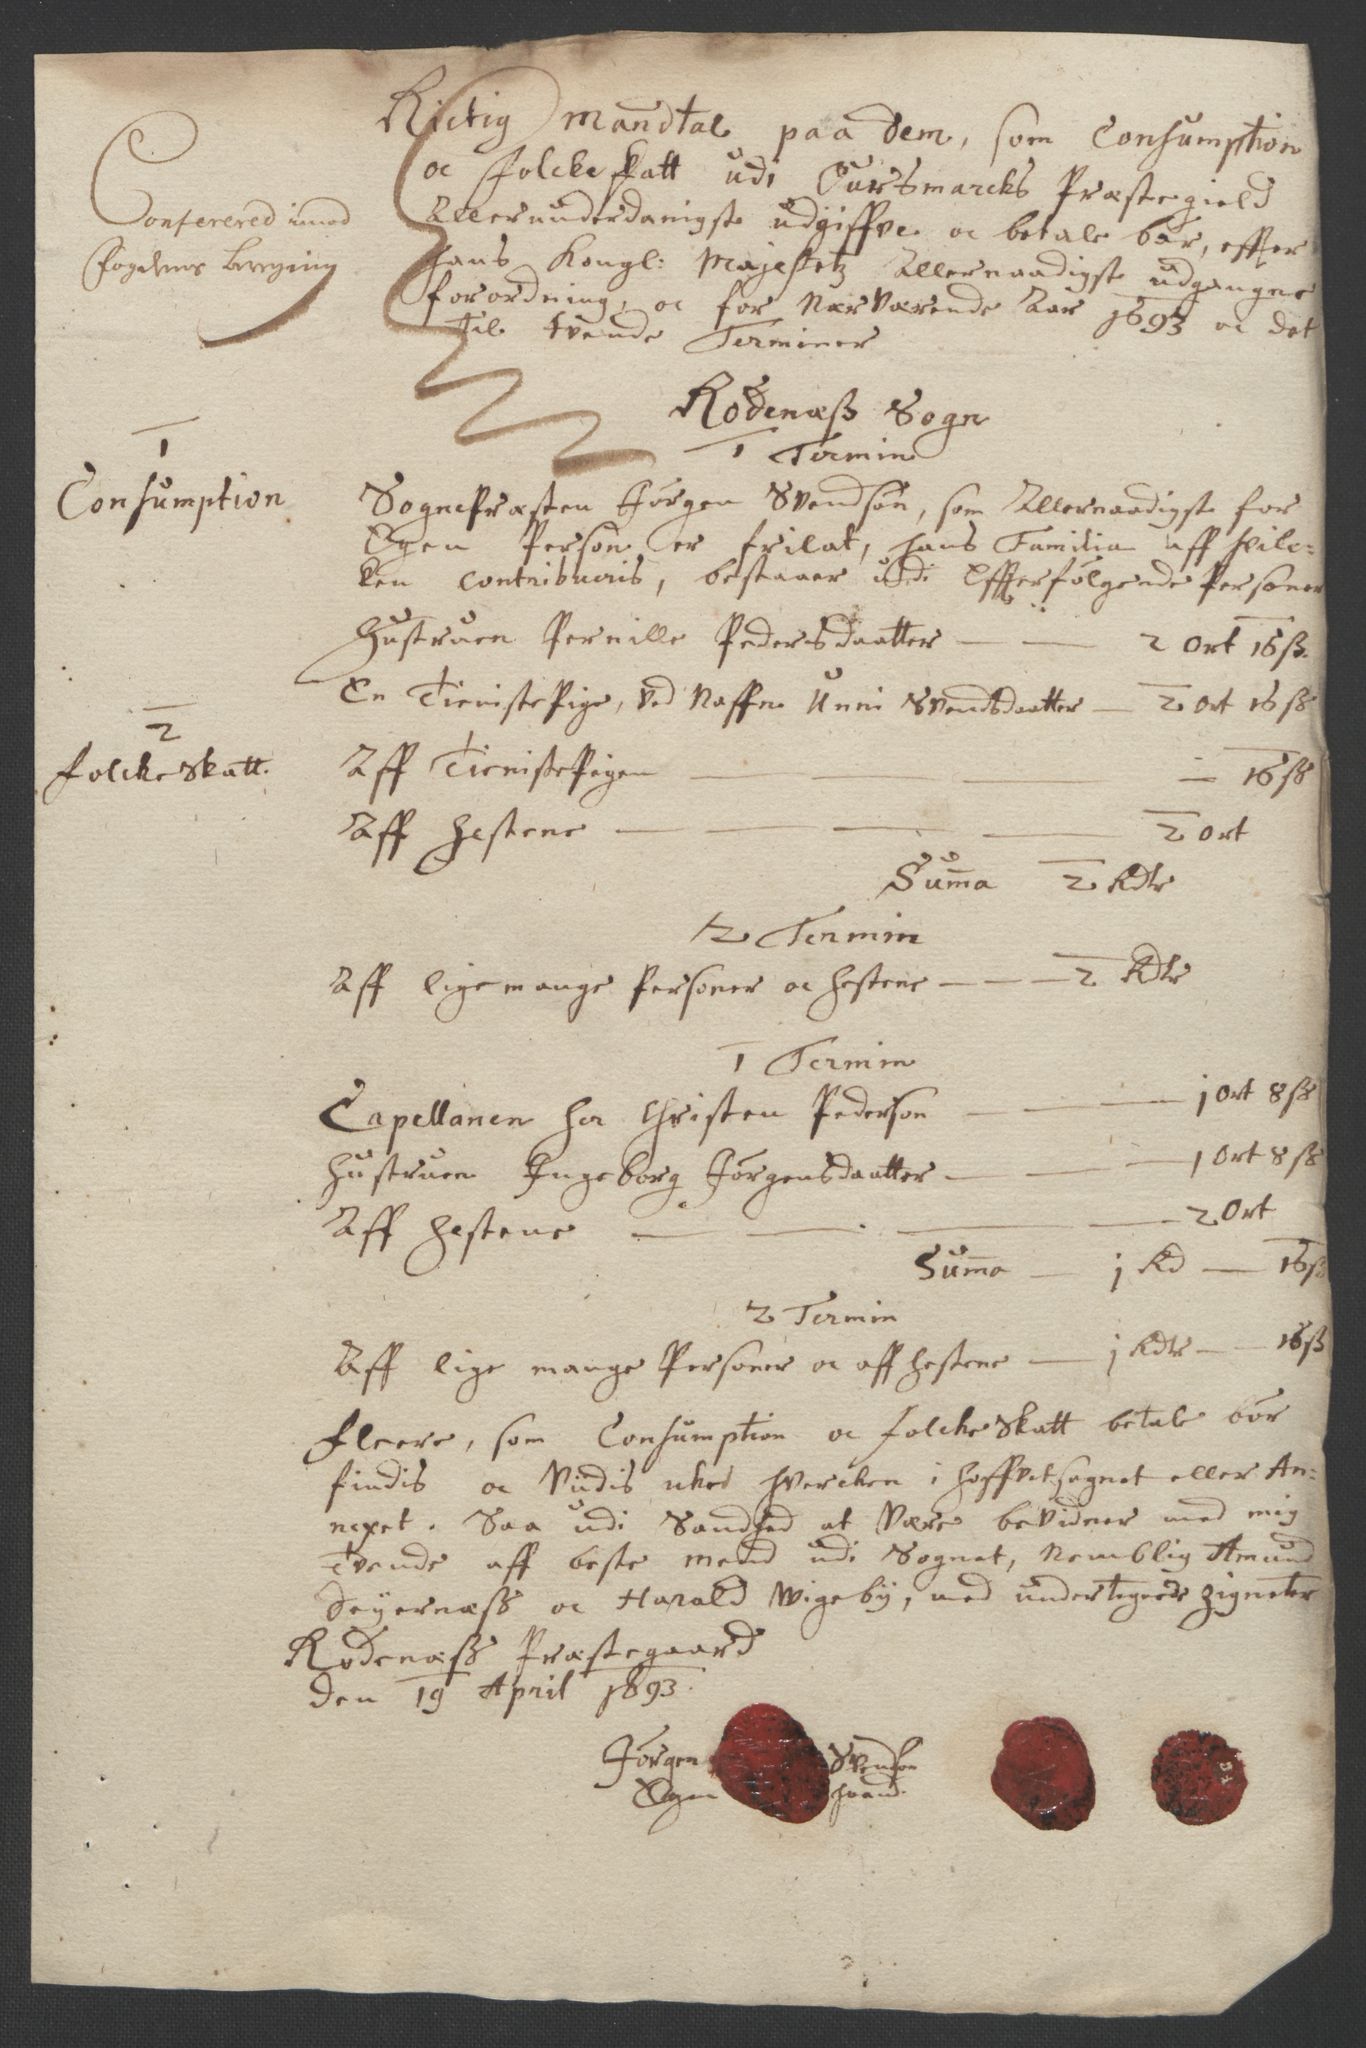 Rictig Mandtal paa dem, som Consumption
oc Folcke skatt udi Ourßmarcks Præstegield
Allerunderdanigste udgiffve oc betale bør, effter
Conferered imod
hans Kongl: Majestetz Allernaadigste udgangne
Fogdens
forordning, oc for Nærværende Aar 1693 oc det
til tvende Terminer
Rødenæß Sogn
1 Termin
1
Consumption
SognePræsten Jørgen Svendsøn, som Allernaadigst for
Egen Person er frilat, hans Familia aff hvil-
ken contribueris, bestaaer udi Effterfølgende Personer
Hustruen Pernille Pedersdaatter — — 2 Ort 16 ß.
En TienistePige, ved Naffn Unni Svendsdaatter — 2 Ort 16 ß
2
Folcke Skatt.
Aff TienistePigen — — — — 16 ß
Aff hestene — — — — 2 Ort
Suma 2 Rdlr
2 Termin
Aff lige mange Personer oc hestene — — — 2 Rdlr
1 Termin
Capellanen her Christen Pedersøn — — — 1 Ort 8 ß
Hustruen Ingeborg Jørgensdaatter — — — 1 Ort 8 ß
Aff hestene — — — — 2 Ort
Suma — 1 Rd — 16 ß
2 Termin
Aff lige mange Personer oc aff hestene — 1 Rdlr — 16 ß
Fleere, som Consumption oc Folcke Skatt betale bør
findis oc Vidis icke hvercken i hoffvetsognet eller An-
nexet. Saa udi Sandhed at være beVidner med mig
Tvende aff beste mend udi Sognet, Nemblig Amund
Seyernæss oc Harald Wigeby, med undertegnede Zigneter
Rødenæss Præstegaard
den 19 April 1693.
Jørgen Svendsøn
Egen haand.